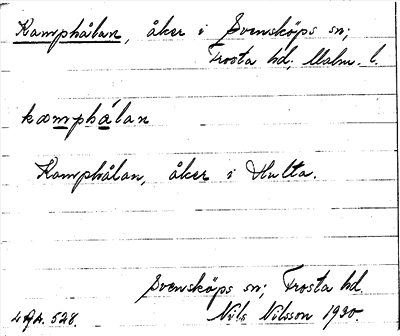 Kamphålan, åker i Svensköps sn;
Frosta hd, Malm. l.
kamphålan
Kamphålan, åker i Hulta.
Svensköps sn; Frosta hd.
Nils Nilsson 1930.
528.